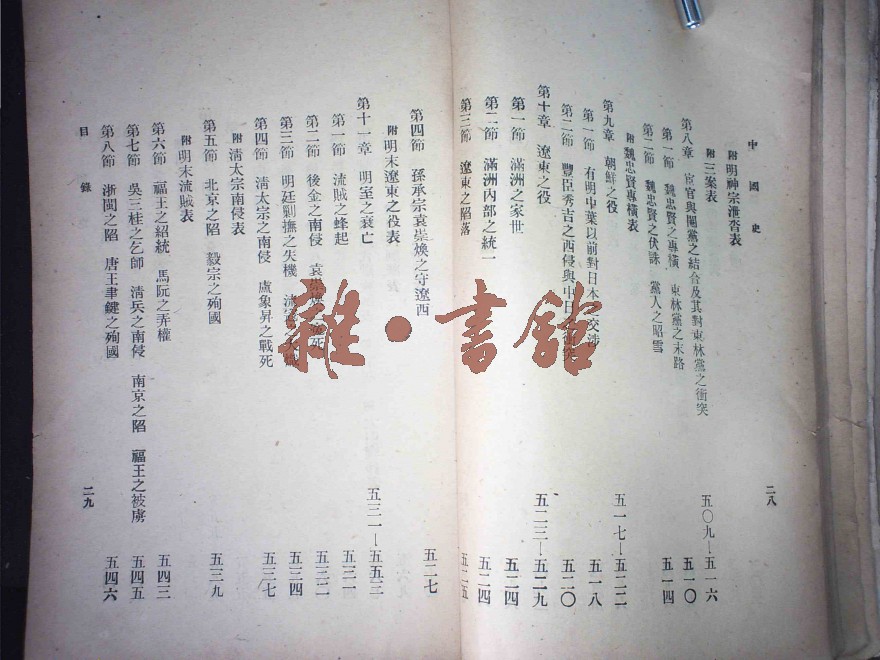 中國史
附 明神宗泄沓表
附 三案表
第八章 宦官與閹黨之結合及其對東林黨之衝突 五〇九—五一六
第一節 魏忠賢之專橫 東林黨之末路 五一〇
第二節 魏忠賢之伏誅 黨人之昭雪 五一四
附 魏忠賢專橫表
第九章 朝鮮之役 五一七—五二二
第一節 有明中葉以前對日本 交涉 五一八
第二節 豐臣秀吉之西侵與中日 五二〇
第十章 遼東之役 五二三—五二九
第一節 滿洲之家世 五二四
第二節 滿洲內部之統一 五二四
第三節 遼東之陷落 五二五
二八
第四節 孫承宗袁崇煥之守遼西 五二七
附 明末遼東之役表
第十一章 明室之衰亡 五三一—五五三
第一節 流賊之蜂起 五三一
第二節 後金之南侵 袁崇 死 五三二
第三節 明廷剿撫之失機 五三四
第四節 清太宗之南侵 盧象昇之戰死 五三七
附 清太宗南侵表
第五節 北京之陷 毅宗之殉國 五三九
附 明末流賊表
第六節 福王之紹統 馬阮之弄權 五四三
第七節 吳三桂之乞師 清兵之南侵 南京之陷 福王之被虜 五四五
第八節 浙閩之陷 唐王聿鍵之殉國 五四六
目錄
二九
雜·書館